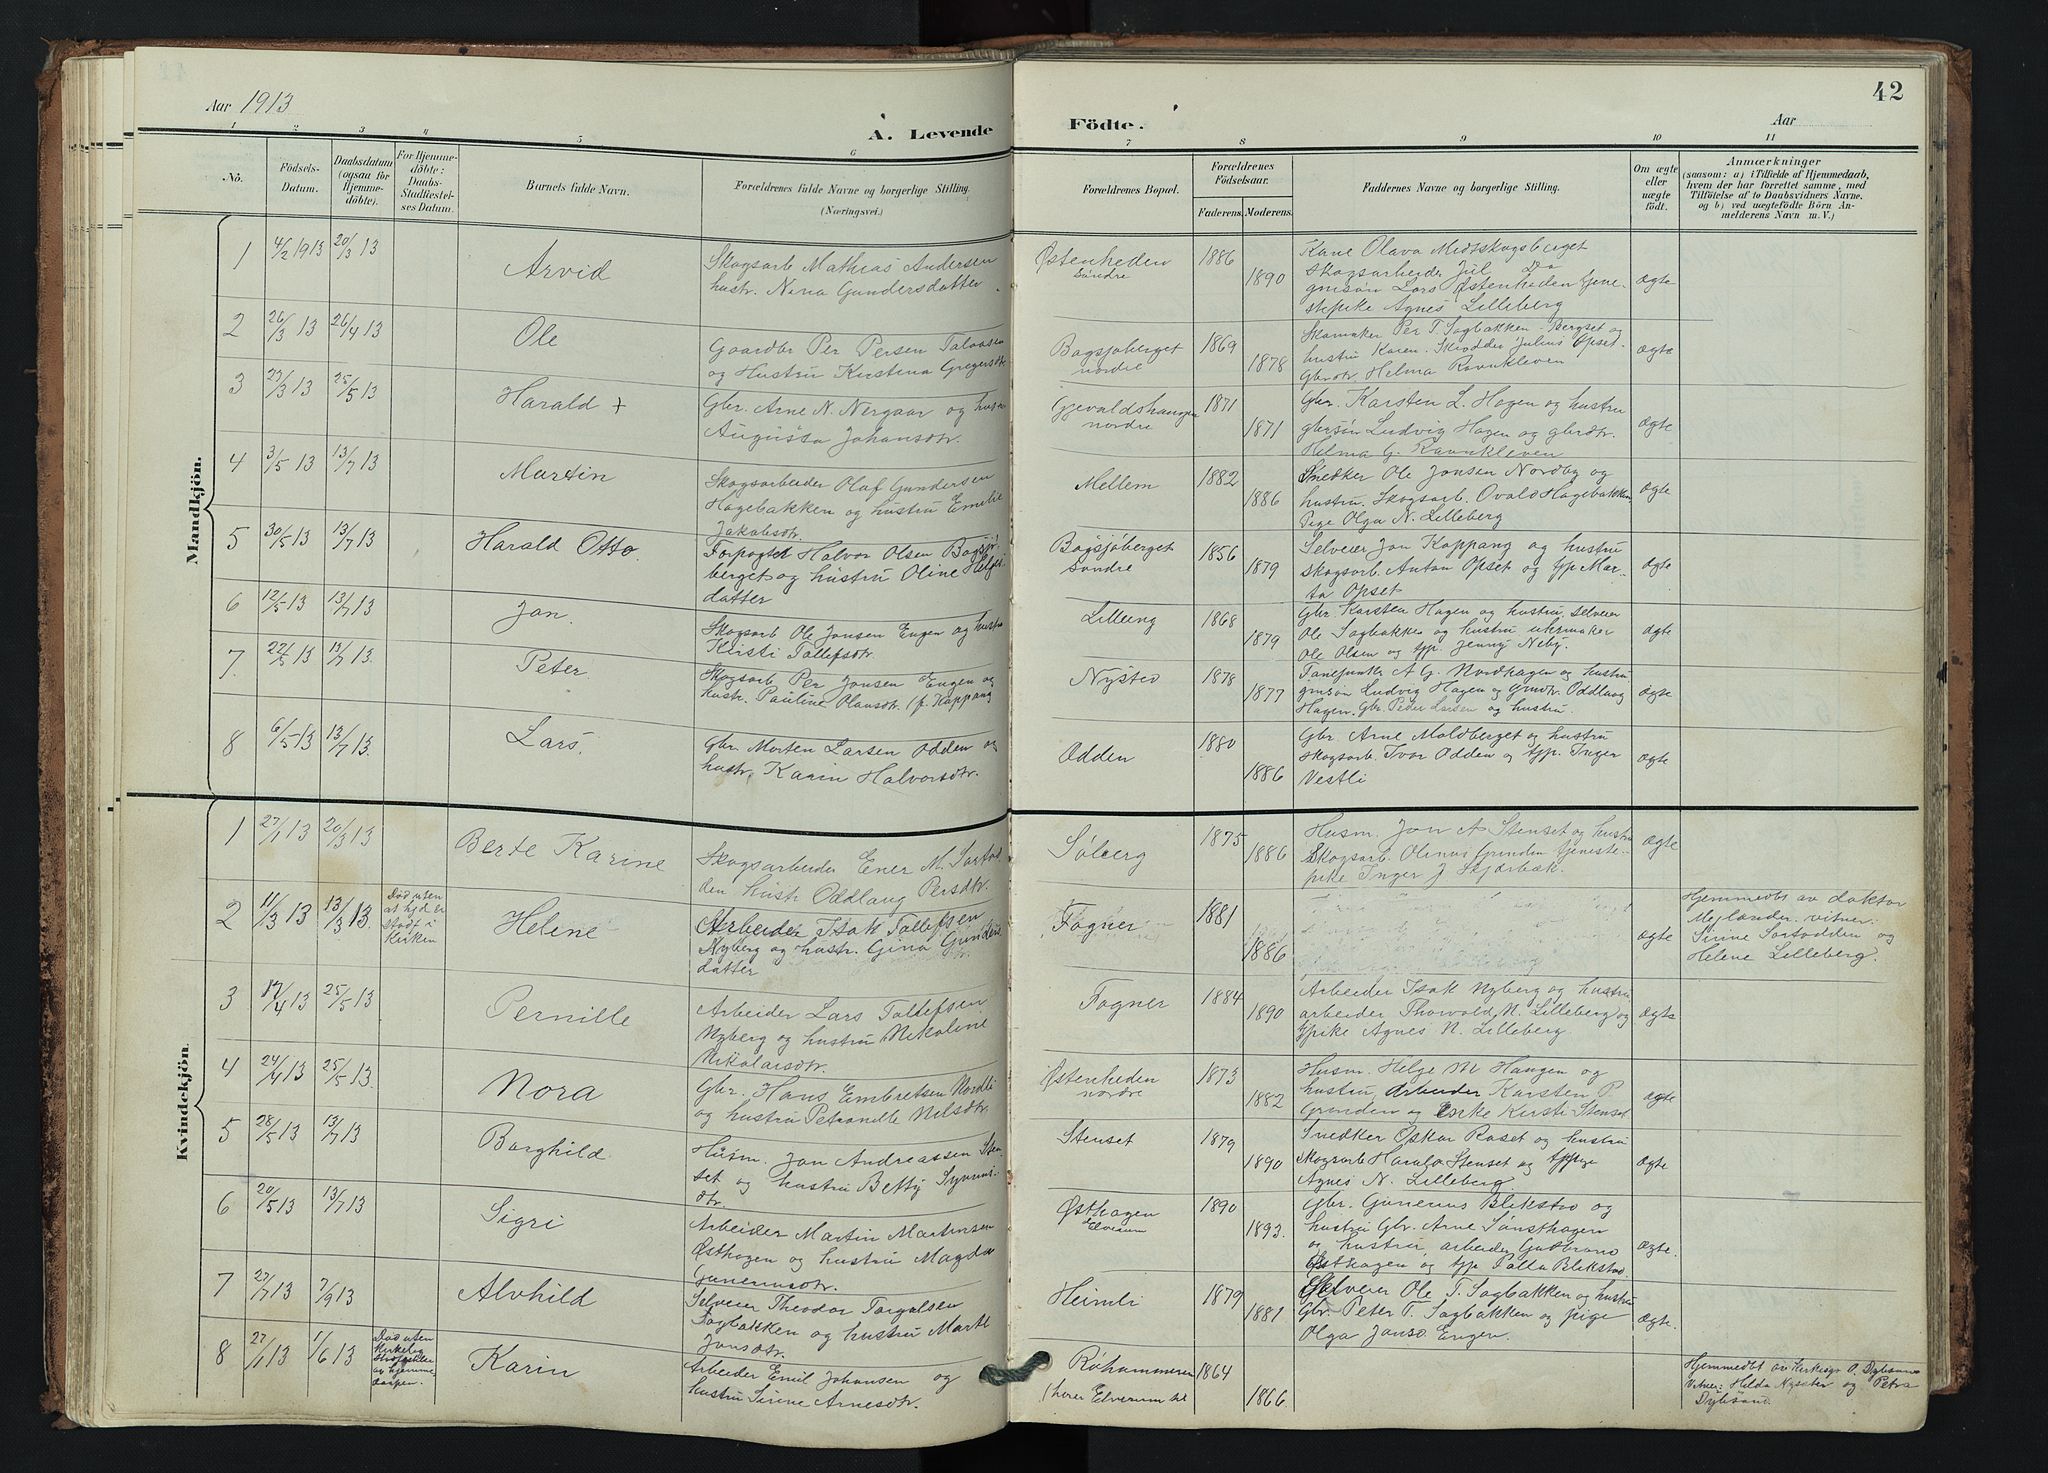 Aar 1913
A. Levende
Födte.
Aar
42
1 2 3 4 5 6 7 8 9 10 11
No.
Födsels-
Datum.
Daabsdatum
(ogsaa for
Hjemme-
döbte).
For Hjemme-
döbte:
Daabs-
Stadfæstel-
ses Datum.
Barnets fulde Navn.
Forældrenes fulde Navne og borgerlige Stilling.
(Næringsvei.)
Forældrenes Bopæl.
Forældrenes
Födselsaar.
Faderens. Moderens.
Faddernes Navne og borgerlige Stilling.
Om ægte
eller
uægte
født.
Anmærkninger
(saasom: a) i Tilfælde af Hjemmedaab,
hvem der har forrettet samme, med
Tilföielse af to Daabsvidners Navne,
og b) ved uægtefödte Börn An-
melderens Navn m. V.)
Mandkjön.
1 4/2 1913 20/3 13 Arvid
Skogsarb Mathias Andersen
hustr. Nina Gundersdatter
Østenheden
søndre
1886 1890
Kone Olava Midtskogsberget
skogsarbeider Jul Do
gmsøn Lars Østenheden tjene-
stepike Agnes Lilleberg
ægte
2 26/3 13 26/4 13 Ole
Gaardbr Per Persen
og Hustru Kirstina Gregersdtr
Bagsjøberget
nordre
1869 1878
Skomaker Per T. Sagbakken Berget og
hustru Karen. Julius Opset
Gbrdtr. Helma Ravnkleven
ægte
3 27/3 13 25/5 13 Harald +
Gbr. Arne N. Nergaar og hus
Augusta Johansdtr.
Gjevaldshaugen
nordre
1871 1871
Gbr. Karsten L. Hagen og hustru
gbrsøn Ludvig Hagen og gbrdtr.
Helma G. Ravnkleven
ægte
4 3/5 13 13/7 13 Martin
Skogsarbeider Olaf Gundersen
Hagebakken og hustru Emelie
Jakobsdtr.
Mellem
1882 1886
Snedker Ole Jonsen Nordby og
hustru. Skogsarb. Hagebakken
Pige Olga N. Lilleberg
ægte
5 30/5 13 13/7 13 Harald Otto.
Forpagter Halvor Olsen Bagsjø-
berget og hustru Oline Helges
datter
Bagsjøberget
søndre
1856 1879
Selveier Jon Koppang og hustru
skogsarb. Anton Opset og tjp Mar-
ta Opset
ægte
6 12/5 13 13/7 13 Jon.
Skogsarb Ole Jonsen Engen og hustru
Kirsti Tollefsdtr.
Lilleeng
1868 1879
Gbr Karsten Hagen og hustru, selveier
Ole Sagbakken og hustru uhrmaker
Ole Olsen og tjp. Jenny Neby.
ægte
7. 22/5 13 13/7 13. Peter.
Skogsarb Per Jonsen Engen og
hustr. Pauline Olausdtr. (f. Koppang
Nysted
1878 1877
A. G. Nordhagen og hustru
gmsøn Ludvig Hagen og Gmdtr. Oddlaug
Hagen. Gbr Peder Larsen og hustru.
ægte
8 6/5 13 13/7 13. Lars.
Gbr. Morten Larsen Odden og
hustr. Karin Halvorsdtr.
Odden
1880 1886
Gbr. Arne Moldberget og hustru
skogsarb. Ivar Odden og tjp. Inger
Vestli
ægte
Kvindekjön.
1 27/1 13 20/3 13 Berte Karine
Skogsarbeider Ener M. Sortod
den hustr Oddlaug Persdtr.
Solberg
1875 1886
Husm. Jon A Stenset og hustru
Skogsarb. Olinus Grinden tjeneste-
pike Inger J Skjærbæk.
ægte
2 11/3 13 13/3 13.
Død uten
at hjd er
stadf i
kirken
Helene
Arbeider Isak Tollefsen
Nyberg og hustr. Gina
datter
Fagner
1881 1886
ægte
Hjemmedbt av doktor
Mejlænder. vitner:
Sirine Sortodden og
Helene Lilleberg.
3 17/4 13 25/5 13 Pernille
Arbeider Lars Tollefsen
Nyberg og hustru Nikoline
Nikolaisdtr.
Fagner
1884 1890
Arbeider Isak Nyberg og hustru
arbeider Thorvald N. Lilleberg og
tjpike Agnes N. Lilleberg
ægte
4 24/4 13 25/5 13. Nora
Gbr. Hans Embretsen Nordli
og hustru Petronelle Nilsdtr.
Østenheden
nordre
1873 1882
Husm. Helge M Haugen og
hustru, Arbeider Karsten P.
Grinden og Kirsti Stenset
ægte
5 28/5 13 13/7 13 Borghild
Husm. Jon Andreassen Sten-
set og hustru Betty
dtr.
Stenset
1879 1890
Snedker Oskar Roset og hustru
Skogsarb Harald Stenset og tjpige
Agnes N. Lilleberg
ægte
6 20/5 13 13/7 13 Sigri
Arbeider Martin Martinsen
Østhagen og hustru Magda
Gunerusdtr.
Østhagen
Elverum
1890 1893.
Gbr. Gunerus Blekstad og
hustru Gbr. Arne Sønsthagen
og hustru, arbeider Gudbrand
Østhagen og tjp Palla Blekstad.
ægte.
7 27/7 13 7/9 13 Alvhild
Selveier Theodor Torgalsen
Sagbakken og hustru Marte
Jonsdtr.
Heimli
1879 1881
Selveier Ole T. Sagbakken og hustru
Gbr. Peter T. Sagbakken og pige
Olga Jonsd. Engen.
ægte.
8 27/1 13 1/6 13
Død uten
kirkelig
av hjemme
daapen.
Karin
Arbeider Emil Johansen og
hustru Sirine Arnesdtr.
Røhammeren
(hører Elverum til
1864 1866.
Hjemmedbt av kirkesgr O. Dybsand
Vitner: Hilda Nyseter og Petra
Dybsand.